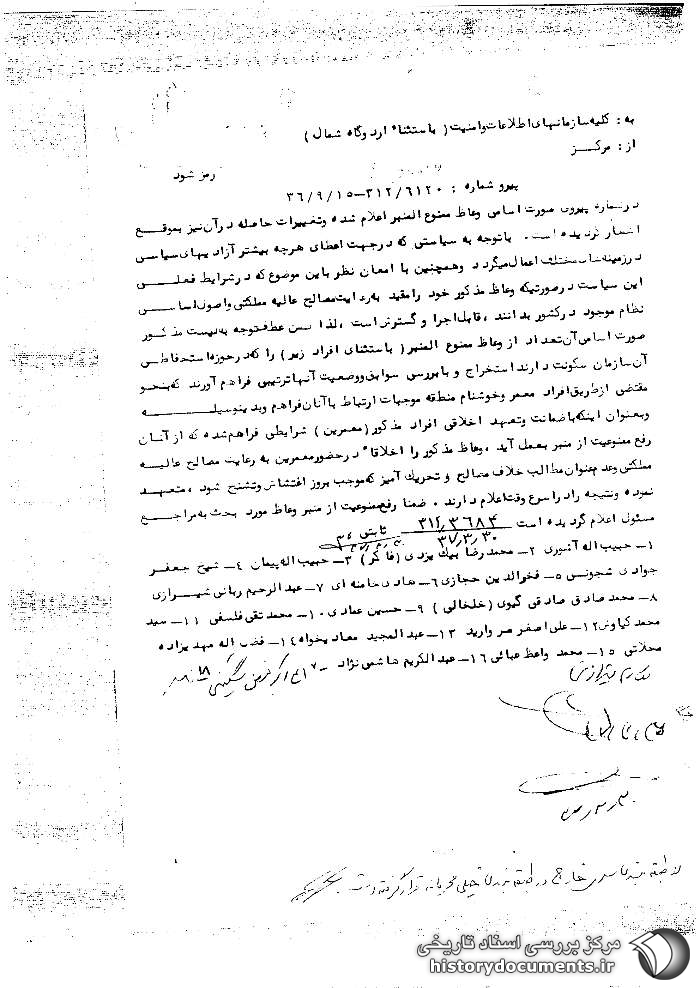 به: کلیه سازمانهای اطلاعات وامنیت ( باستثناء اردوگاه شمال )
از: مرکز
رمز شود
پیرو شماره : ۳۱۲/۶۱۲۰-۳۶/۹/۱۵
درشماره پیروی صورت اسامی وعاظ ممنوع المنبر اعلام شده وتغییرات حاصله درآن نیز بموقع
اشعار گردیده است . باتوجه به سیاستی که درجهت اعطای هرچه بیشتر آزادیهای سیاسی
درزمینه های مختلف اعمال میگردد وهمچنین با امعان نظر باین موضوع که درشرایط فعلی
این سیاست درصورتیکه وعاظ مذکور خود رامقید به رعایت مصالح عالیه مملکتی واصول اساسی
نظام موجود درکشور بدانند ، قابل اجرا و گسترش است ، لذا ضمن عطف توجه به لیست مذکور
صورت اسامی آن تعداد از وعاظ ممنوع المنبر ( باستثنای افراد زیر ) را که درحوزه استحفاظی
آن سازمان سکونت دارند استخراج و بابررسی سوابق ووضعیت آنها ترتیبی فراهم آورند که بنحو
مقتضی ازطریق افراد معمر وخوشنام منطقه موجبات ارتباط باآنان فراهم وبدینوسیله
وبعنوان اینکه باضمانت وتعهد اخلاقی افراد مذکور ( معمرین ) شرایطی فراهم شده که از آنان
رفع ممنوعیت از منبر بعمل آید ، وعاظ مذکور را اخلاقاً درحضور معمرین به رعایت مصالح عالیه
مملکتی وعدم عنوان مطالب خلاف مصالح و تحریک آمیز که موجب بروز اغتشاش وتشنج شود ، متعهد
نموده ونتیجه را در اسرع وقت اعلام دارند . ضمنا رفع ممنوعیت از منبر وعاظ مورد بحث به مراجع
مسئول اعلام گردیده است ۳۱۲/۳۶۸۴ ثابتی
۳۷/۳/۳۰
۱- حبیب اله آشوری ۲- محمدرضا بیک یزدی ( فاکر ) ۳- حبیب اله پیمان ۴- شیخ جعفر
جوادی شجونی ۵- فخرالدین حجازی ۶- هادی خامنه ای ۷- عبدالرحیم ربانی شیرازی
۸- محمد صادق صادقی گیوی ( خلخالی ) ۹- حسین عمادی ۱۰- محمد تقی فلسفی ۱۱- سید
محمد کیاوش ۱۲- علی اصغر مروارید ۱۳- عبدالمجید معادیخواه ۱۴- فضل اله مهدیزاده
محلاتی ۱۵- محمد واعظ عبائی ۱۶- عبدالکریم هاشمی نژاد ۱۷-
مکارم شیرازی
مرکز بررسی اسناد تاریخی
historydocuments.ir